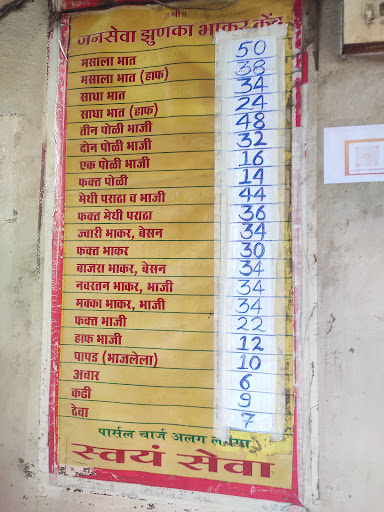 ॥ श्री ॥
जनसेवा झुणका भाकर केंद्र
मसाला भात 50
मसाला भात (हाफ) 38
साधा भात 34
साधा भात (हाफ) 24
तीन पोळी भाजी 48
दोन पोळी भाजी 32
एक पोळी भाजी 16
फक्त पोळी 14
मेथी पराठा व भाजी 44
फक्त मेथी पराठा 36
ज्वारी भाकर, बेसन 34
फक्त भाकर 30
बाजरा भाकर, बेसन 34
नवरतन भाकर, भाजी 34
मक्का भाकर, भाजी 34
फक्त भाजी 22
हाफ भाजी 12
पापड (भाजलेला) 10
अचार 6
कढी 9
ठेचा 7
पार्सल चार्ज अलग लगेगा
स्वयं सेवा